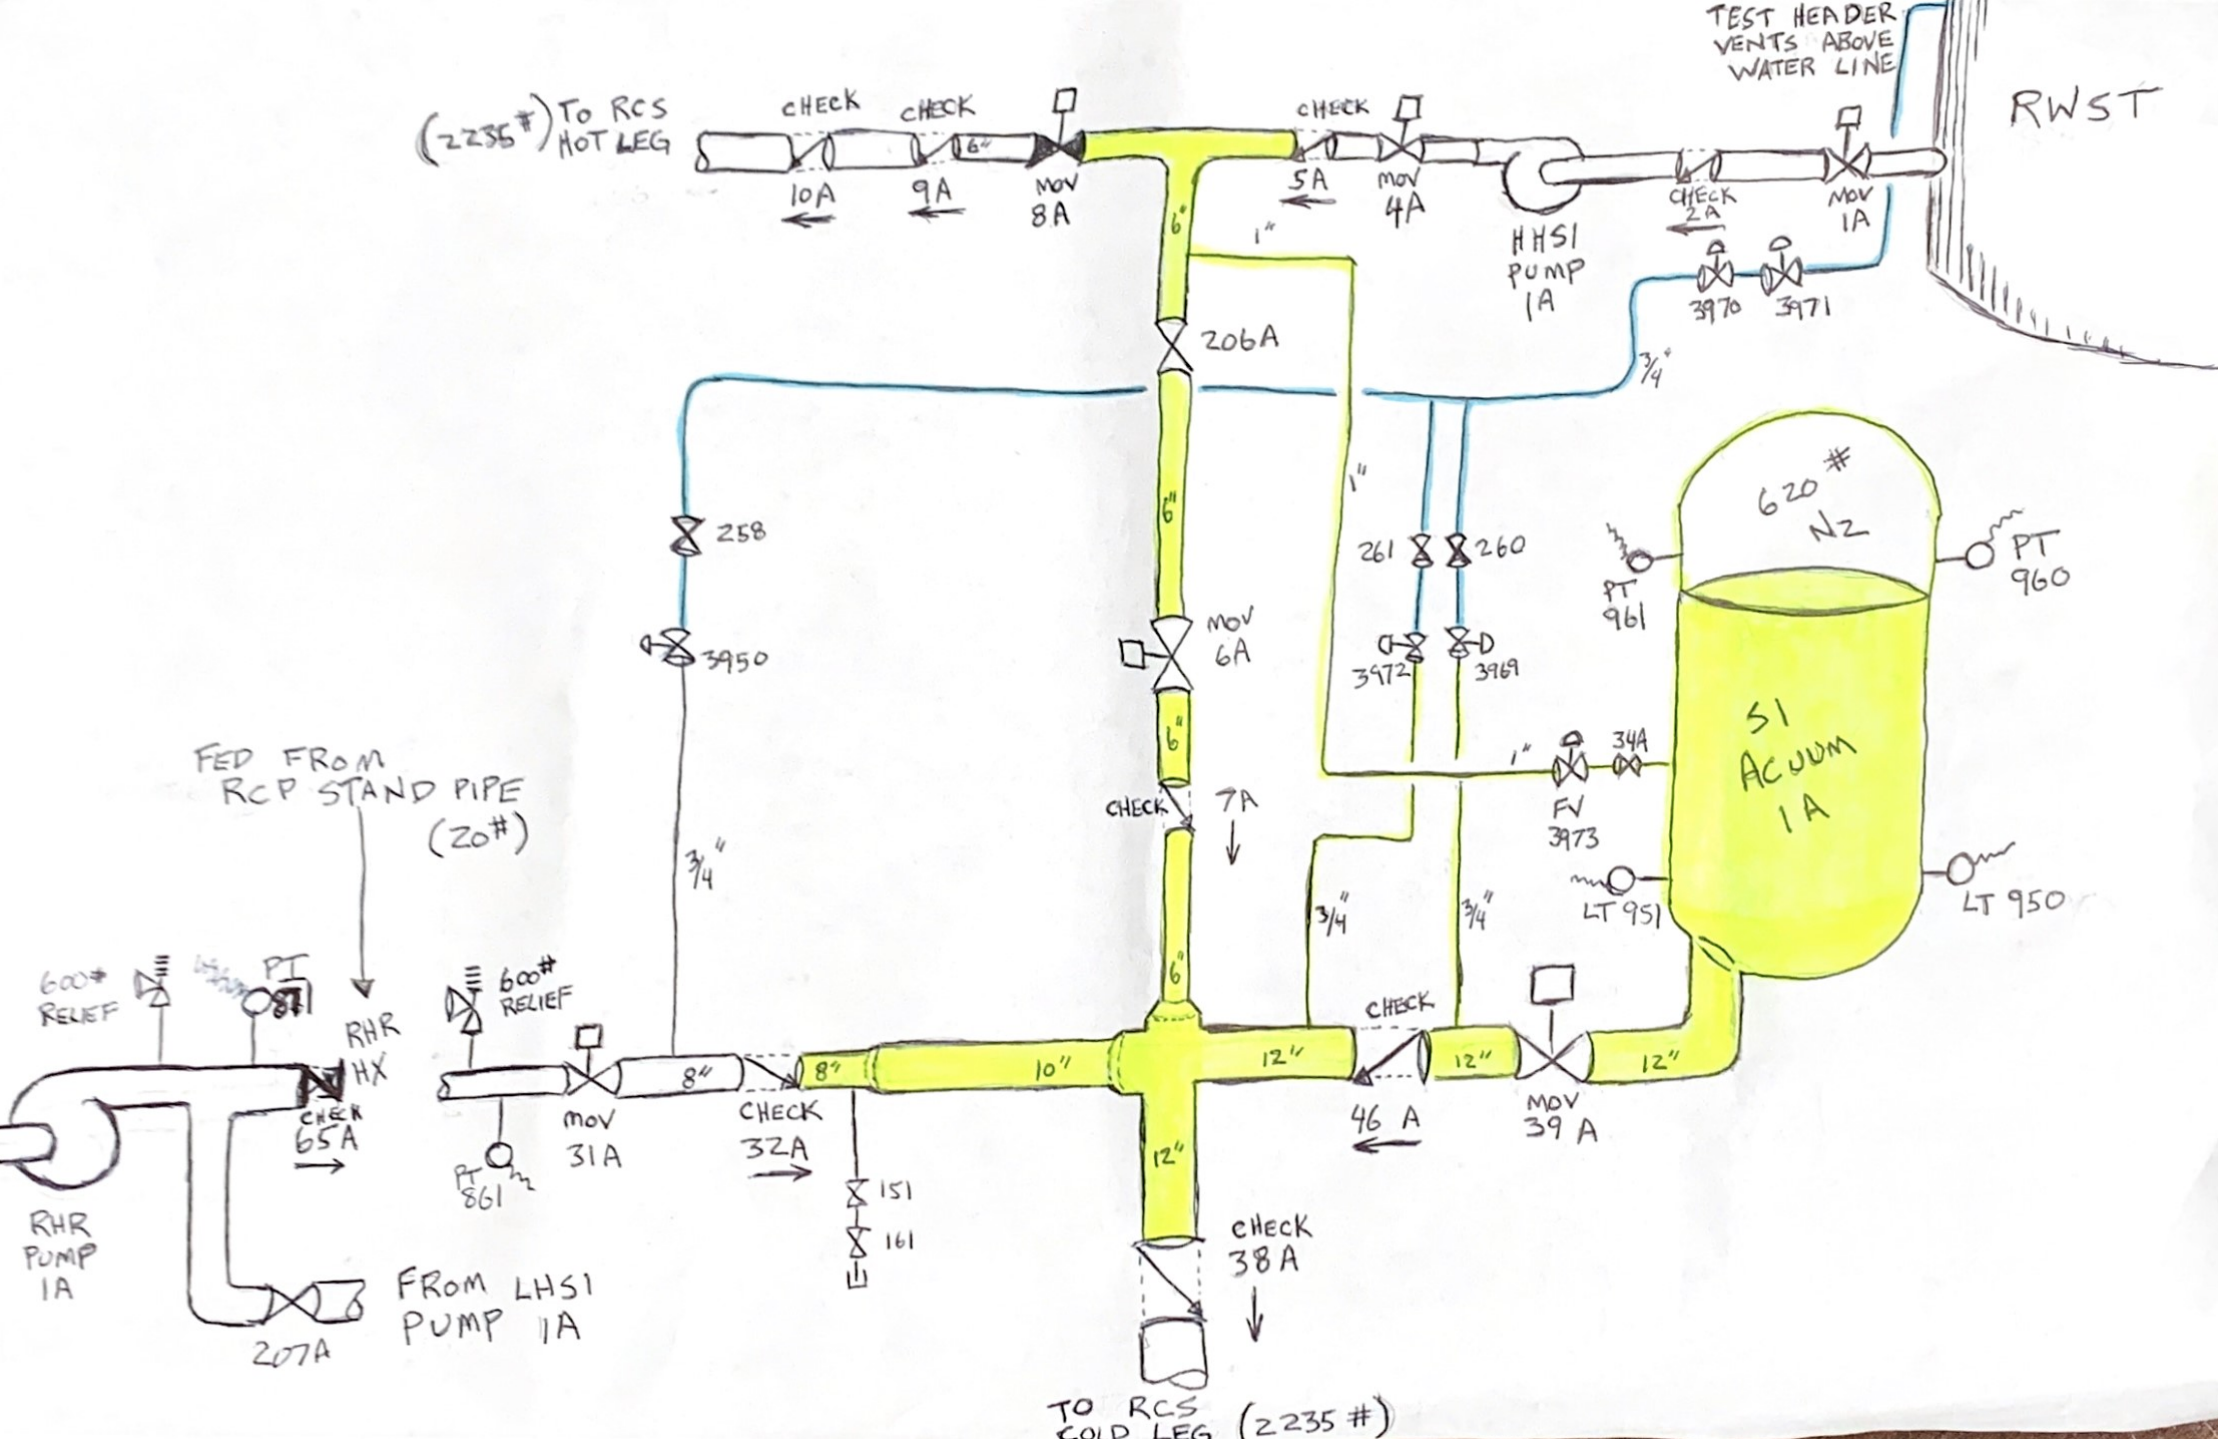 TEST HEADER
VENTS ABOVE
WATER LINE
RWST
(2235#) TO RCS
HOT LEG
CHECK
10A
CHECK
9A
6"
MOV
8A
CHECK
5A
MOV
4A
HHSI
PUMP
1A
CHECK
2A
MOV
1A
3970
3971
3/4"
6"
1"
206A
1"
6"
258
3950
3/4"
261
260
3972
3969
MOV
6A
6"
CHECK
7A
6"
620#
N2
PT
961
PT
960
SI
ACUUM
1A
1"
34A
FV
3973
LT 951
LT 950
3/4"
3/4"
FED FROM
RCP STAND PIPE
(20#)
600#
RELIEF
PT
871
RHR
HX
CHECK
65A
600#
RELIEF
PT
861
MOV
31A
8"
CHECK
32A
8"
10"
12"
CHECK
46 A
12"
MOV
39 A
12"
12"
151
161
RHR
PUMP
1A
207A
FROM LHSI
PUMP 1A
CHECK
38A
TO RCS
COLD LEG (2235#)